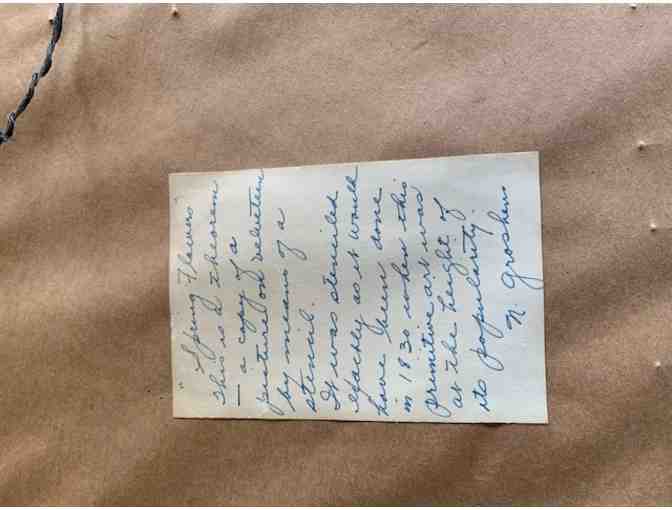 "Spring Flowers"
This is a theorem
— a copy of a
picture on velveteen
by means of a
stencil.
It was stenciled
exactly as it would
have been done
in 1830 when this
primitive art was
at the height of
its popularity.
N. Groshens